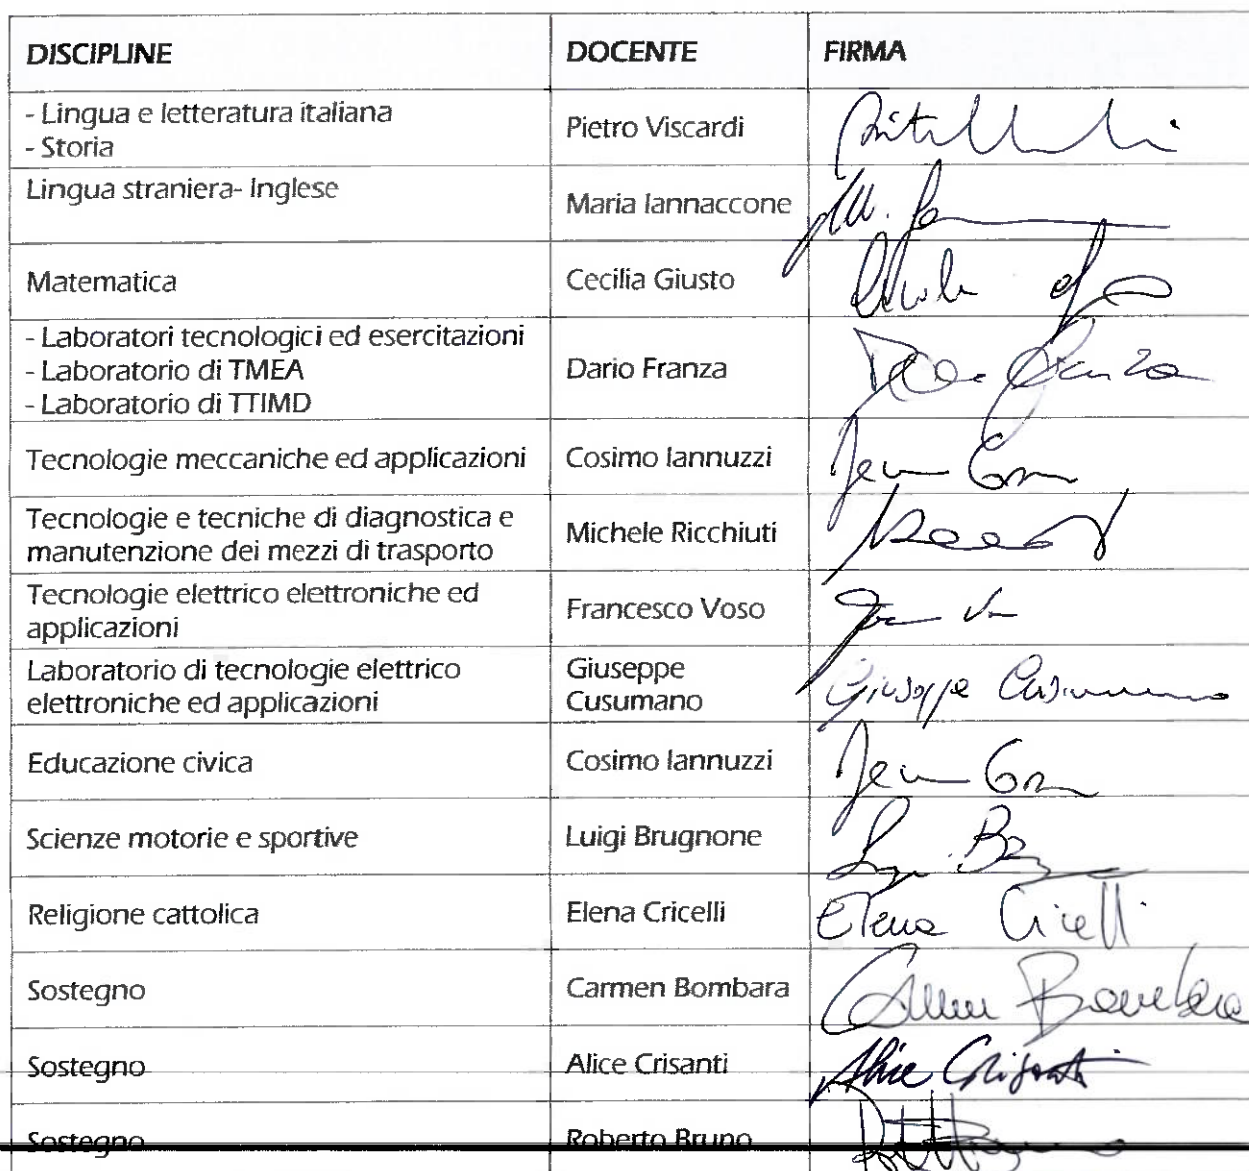 DISCIPLINE DOCENTE FIRMA
- Lingua e letteratura italiana
- Storia
Pietro Viscardi
Lingua straniera- Inglese
Maria Iannaccone
Matematica
Cecilia Giusto
- Laboratori tecnologici ed esercitazioni
- Laboratorio di TMEA
- Laboratorio di TTIMD
Dario Franza
Tecnologie meccaniche ed applicazioni
Cosimo Iannuzzi
Tecnologie e tecniche di diagnostica e
manutenzione dei mezzi di trasporto
Michele Ricchiuti
Tecnologie elettrico elettroniche ed
applicazioni
Francesco Voso
Laboratorio di tecnologie elettrico
elettroniche ed applicazioni
Giuseppe
Cusumano
Giuseppe Cusumano
Educazione civica
Cosimo Iannuzzi
Scienze motorie e sportive
Luigi Brugnone
Religione cattolica
Elena Cricelli
Elena Cricelli
Sostegno
Carmen Bombara
Carmen Bombara
Sostegno
Alice Crisanti
Alice Crisanti
Sostegno
Roberto Bruno